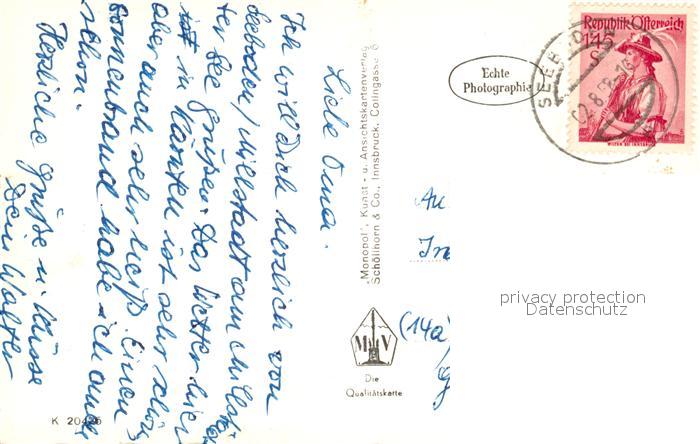 Liebe Oma.
Ich will Dich herzlich von
Seeboden/Millstadt am Millstät
ter See grüßen. Das Wetter hier
in Kärnten ist sehr schön
aber auch sehr heiß. Einen
Sonnenbrand habe ich auch
schon.
Herzliche Grüße u. Küsse
Dein Walter
K 204
"Monopol", Kunst- u. Ansichtskartenverlag
Schöllhorn & Co., Innsbruck, Collingasse 6
M V
Die
Qualitätskarte
Echte
Photographie
Republik Österreich
1.45
SEEBODEN
(14a)
privacy protection
Datenschutz